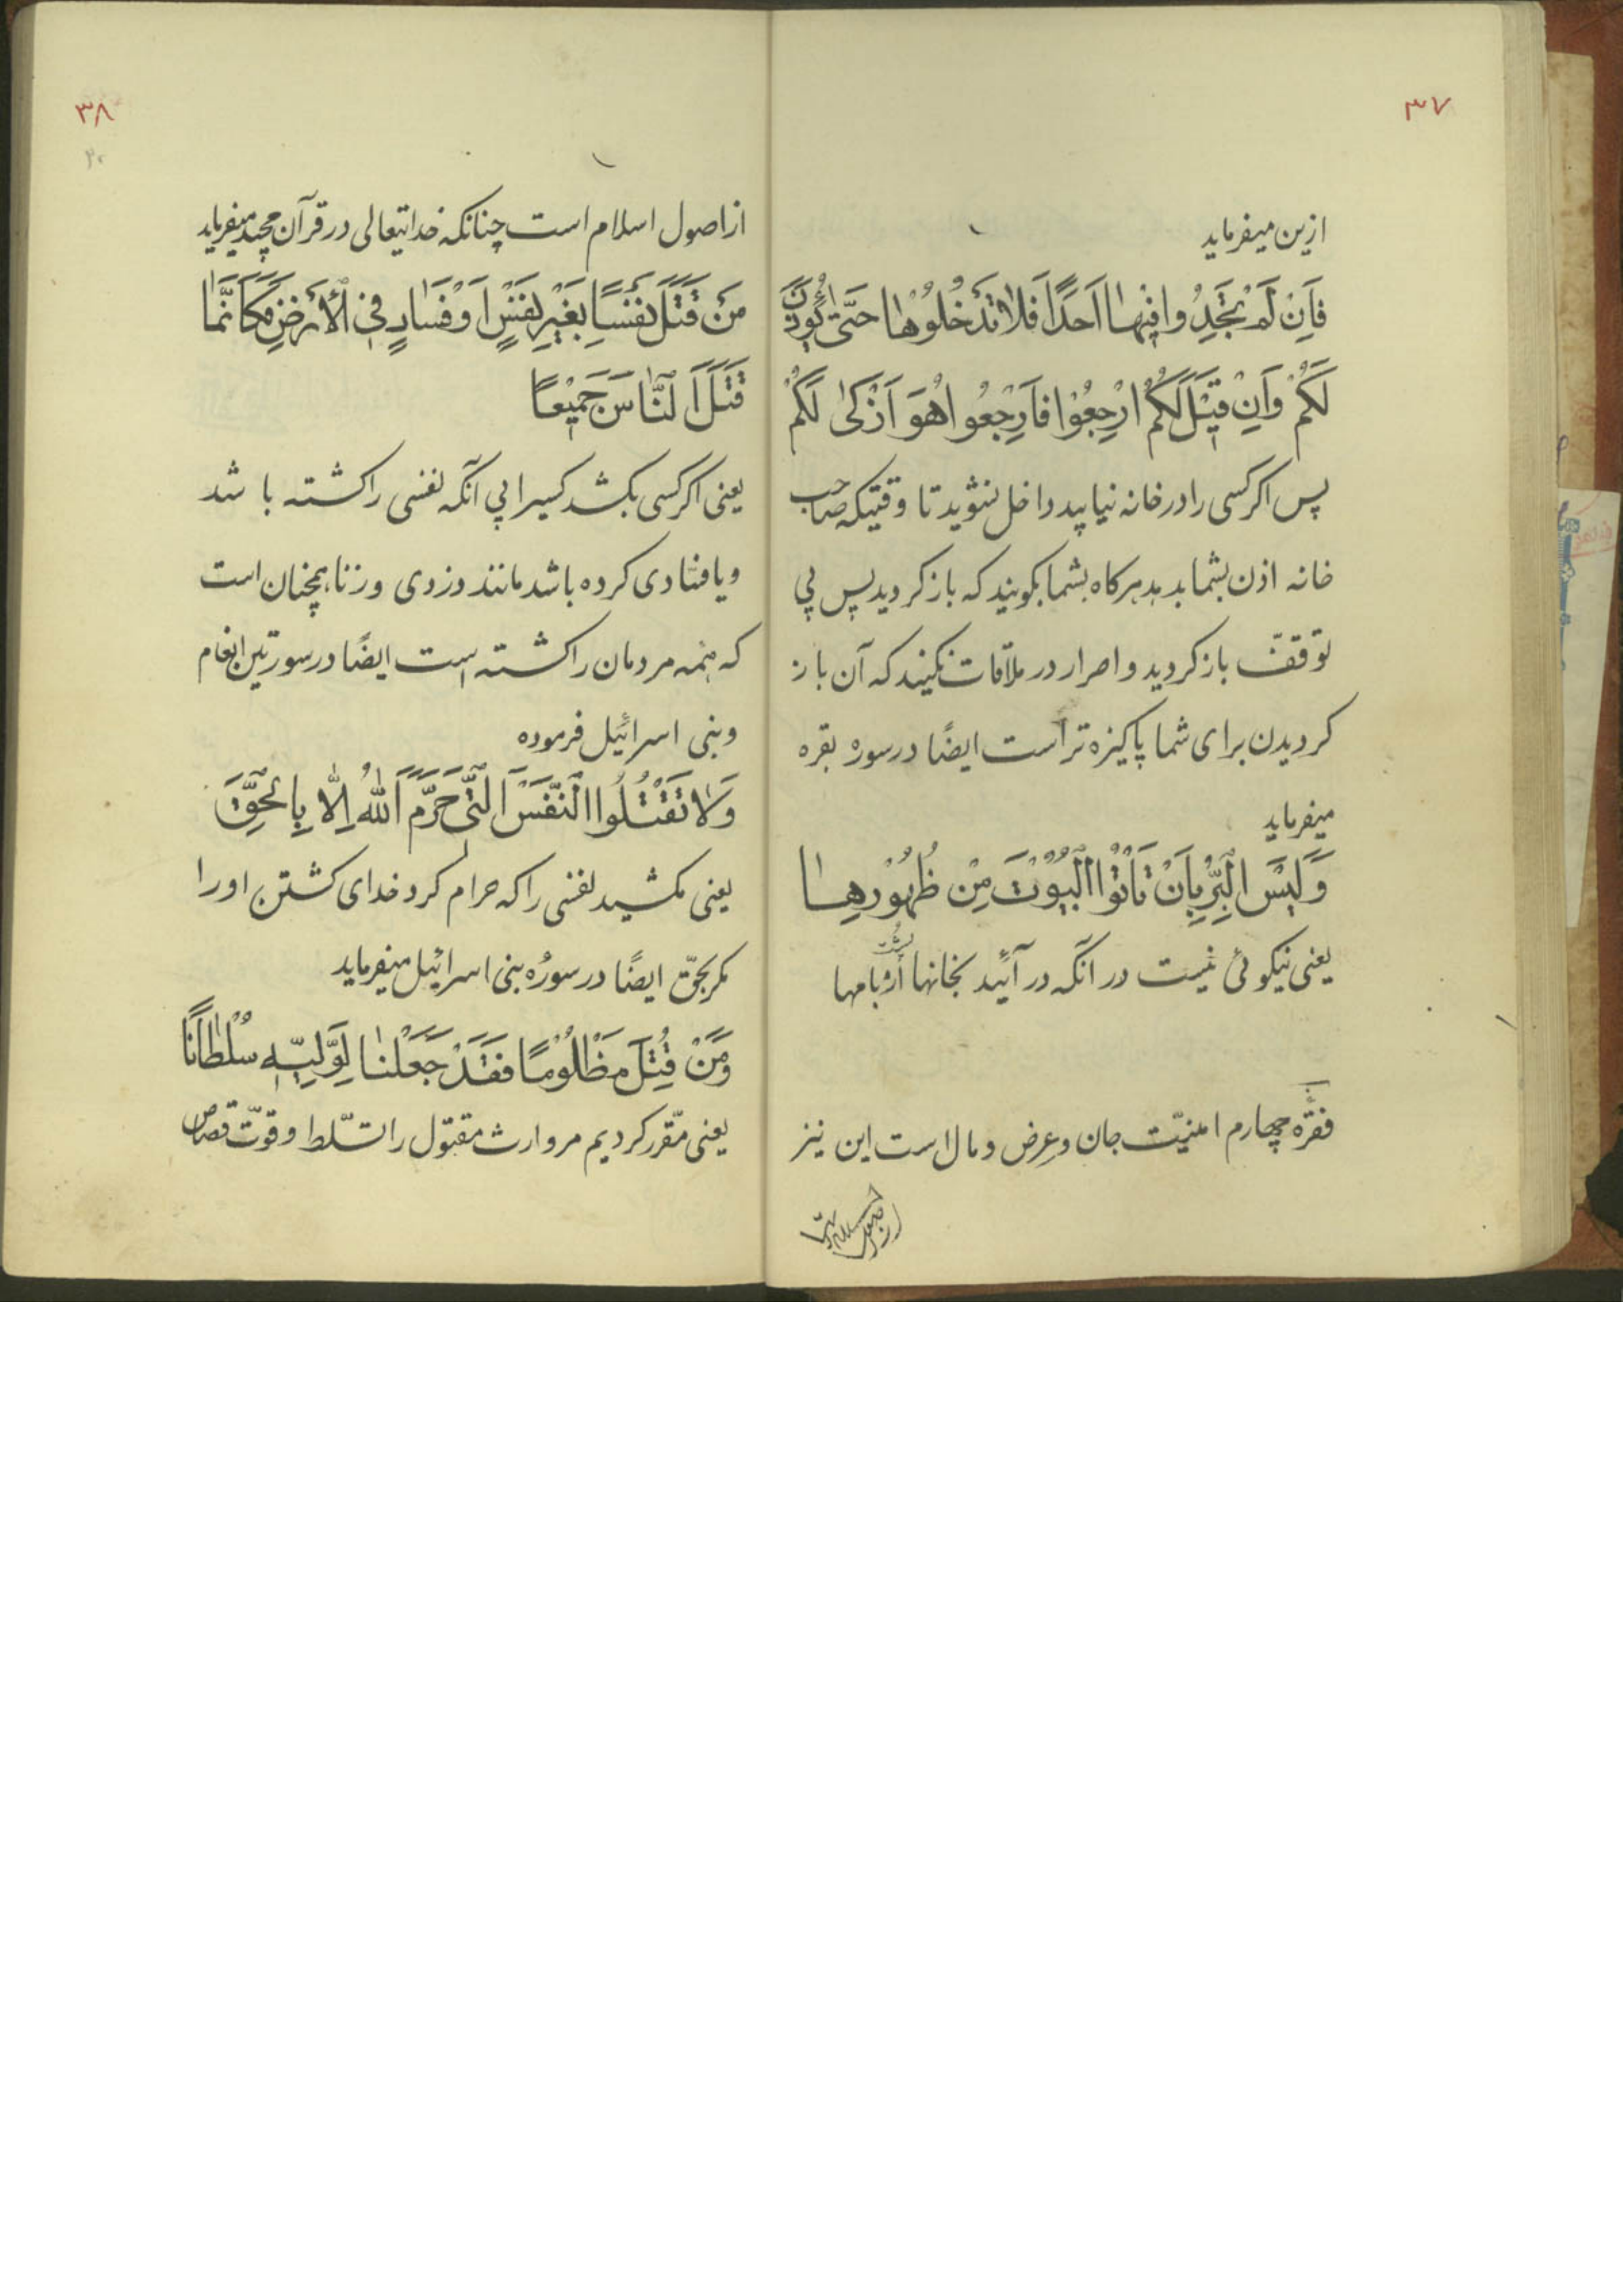 ۳۷
ازین میفرماید
فَاِنْ لَمْ تَجِدُوا فِیهٰا اَحَدًا فَلاٰ تَدْخُلُوْهٰا حَتّیٰ یُؤْذَنَ
لَکُمْ وَاِنْ قِیْلَ لَکُمُ ارْجِعُوْا فَارْجِعُوا هُوَ اَزْکیٰ لَکُمْ
پس اکر کسی را در خانه نیابید داخل نشوید تا وقتیکه صاحب
خانه اذن بشما بدهد هرکاه بشما بکویند که باز کردید پس بی
توقفّ باز کردید و اصرار در ملاقات نکنید که آن باز
کردیدن برای شما پاکیزه تر است ایضًا در سوره بقره
میفرماید
وَلَیْسَ الْبِرُّ بِاَنْ تَاْتُوْا الْبُیُوْتَ مِنْ ظُهُوْرِهٰا
یعنی نیکوئی نیست در آنکه در آئید بخانها از پشت بامها
فقرّه چهارم امنیّت جان و عِرض و مال است این نیز
از اصول
۳۸
از اصول اسلام است چنانکه خدایتعالی در قرآن مجید میفرماید
مَنْ قَتَلَ نَفْسًا بِغَیْرِ نَفْسٍ اَوْ فَسٰادٍ فِی الْأَرْضِ فَکَاَنَّمٰا
قَتَلَ الَنّٰاسَ جَمیْعًا
یعنی اکر کسی بکشد کسیرا بی آنکه نفسی را کشته باشد
و یا فسادی کرده باشد مانند دزدی و زنا همچنان است
که همه مردمان را کشته است ایضًا در سورتین انعام
و بنی اسرائیل فرموده
وَلاٰ تَقْتُلُوا النَّفْسَ الَّتیْ حَرَّمَ اللّٰهُ اِلّٰا بِالْحَقِّ
یعنی مکشید نفسی را که حرام کرد خدای کشتن او را
مکر بحقّ ایضًا در سورُه بنی اسرائیل میفرماید
وَمَنْ قُتِلَ مَظْلُوْمًا فَقَدْ جَعَلْنٰا لِوَلِیّهِ سُلْطٰانًا
یعنی مقّرر کردیم مر وارث مقتول را تسّلط و قوّت قصاص